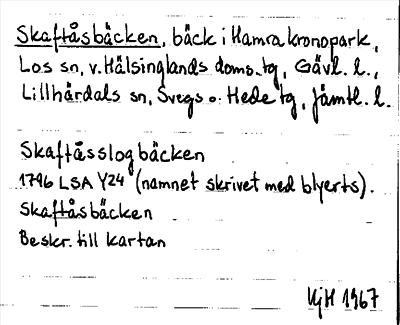 Skaftåsbäcken, bäck i Hamra kronopark,
Los sn, v. Hälsinglands doms. tg, Gävl. l.,
Lillhärdals sn, Svegs o. Hede tg, Jämtl. l.
Skaftåsslogbäcken
1796 LSA Y24 (namnet skrivet med blyerts).
Skaftåsbäcken
Beskr. till kartan
HjH 1967